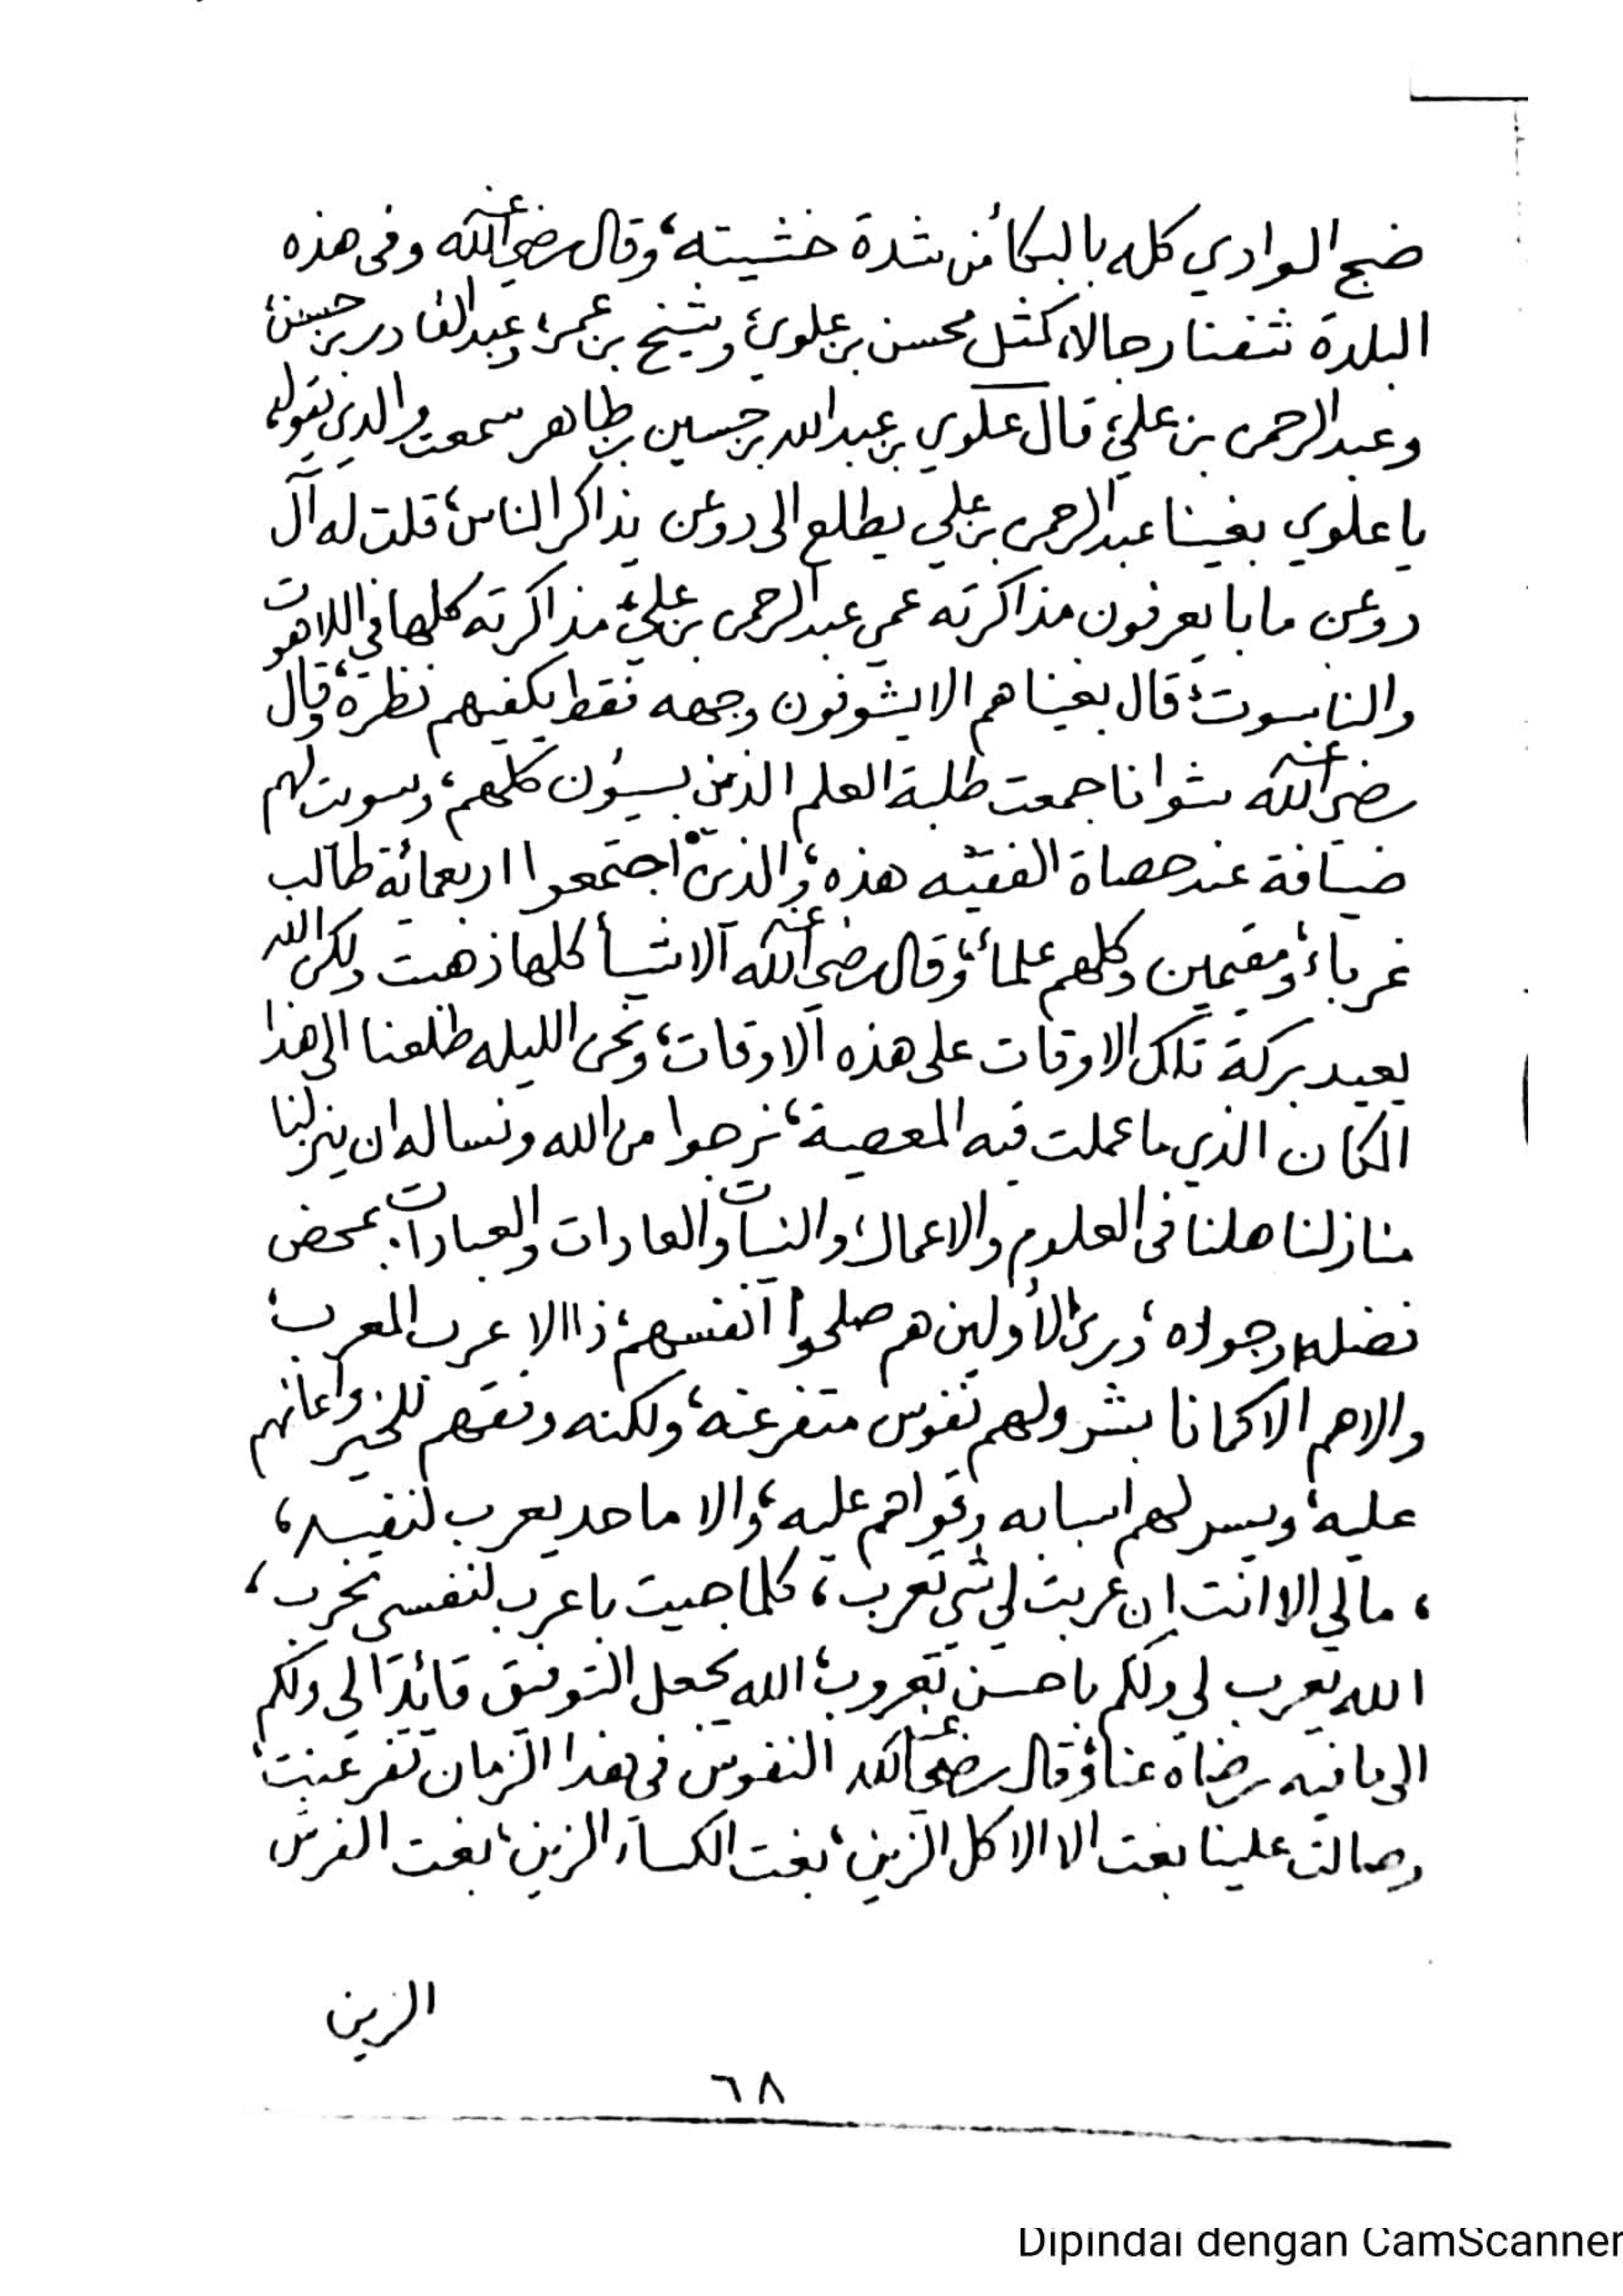 ضج الوادي كله بالبكأ من شدة خشيته، وقال رضي الله عنه وفى هذه
البلدة شفنا رجالا، كمثل محسن بن علوي، وشيخ بن عمر، وعبدالقادر بن حسن،
وعبدالرحمن بن علي، قال علوي بن عبدالله بن حسين بن طاهر سمعت والدي يقول،
يا علوي بغينا عبدالرحمن بن علي يطلع الى دوعن يذاكر الناس، قلت له آل
دوعن ما با يعرفون مذاكرته عمي عبدالرحمن بن علي، مذاكرته كلها في اللاهوت
والناسوت، قال بغيناهم الا يشوفون وجهه فقط يكفيهم نظرة، وقال
رضي الله عنه شوا انا جمعت طلبة العلم الذين بسيؤن كلهم، وسويت لهم
ضيافة عند حصاة الفقيه هذه، والذين اجتمعوا اربعمائة طالب
غرباء، ومقيمين وكلهم علمأ، وقال رضي الله عنه الاشيأ كلها ذهبت ولكن الله
يعيد بركة تلك الاوقات على هذه الاوقات، ونحن الليله طلعنا الى هذا
المكان الذي ما عملت فيه المعصية، نرجوا من الله ونساله ان ينزلنا
منازلنا هلنا فى العلوم والاعمال، والنيات والعادات والعبادات، بمحض
فضله وجوده، وبرى الأولين هم صلحوا انفسهم، ذا الا عرب المعرب،
والاهم الا كمانا بشر ولهم نفوس متفرعنه، ولكنه وفقهم للخير واعانهم
عليه، ويسر لهم اسبابه وقواهم عليه، والا ما حد يعرب لنفسه،
، مالي الا انت ان عربت لي شي تعرب ، كلما جيت باعرب لنفسي تخرب ،
الله يعرب لي ولكم باحسن تعروب، الله يجعل التوفيق قائدا لي ولكم
الى ما فيه رضاه عنا، وقال رضي الله عنه النفوس فى هذا الزمان تفرعنت،
وصالت علينا بغت الا الاكل الزين، بغت الكساء الزين، بغت الفرش
الزين
٦٨
Dipindai dengan CamScanner